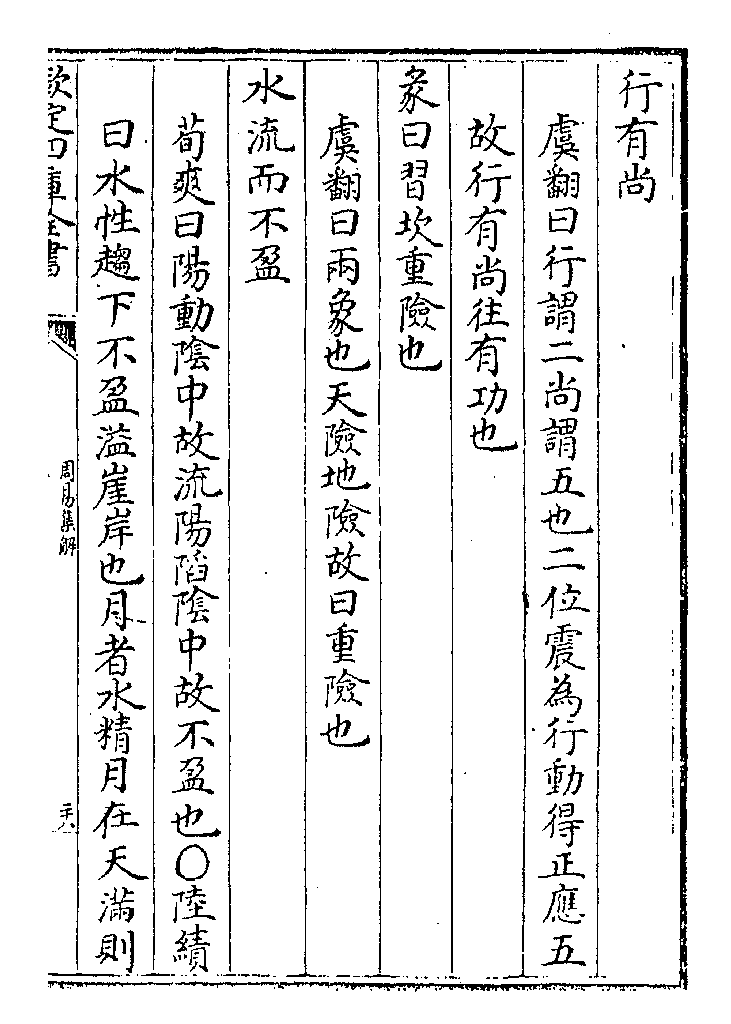 行有尚
虞翻曰行謂二尚謂五也二位震為行動得正應五
故行有尚往有功也
彖曰習坎重險也
虞翻曰兩象也天險地險故曰重險也
水流而不盈
荀爽曰陽動陰中故流陽陷陰中故不盈也〇陸績
曰水性趨下不盈溢崖岸也月者水精月在天滿則
欽定四庫全書
周易集解
二十八